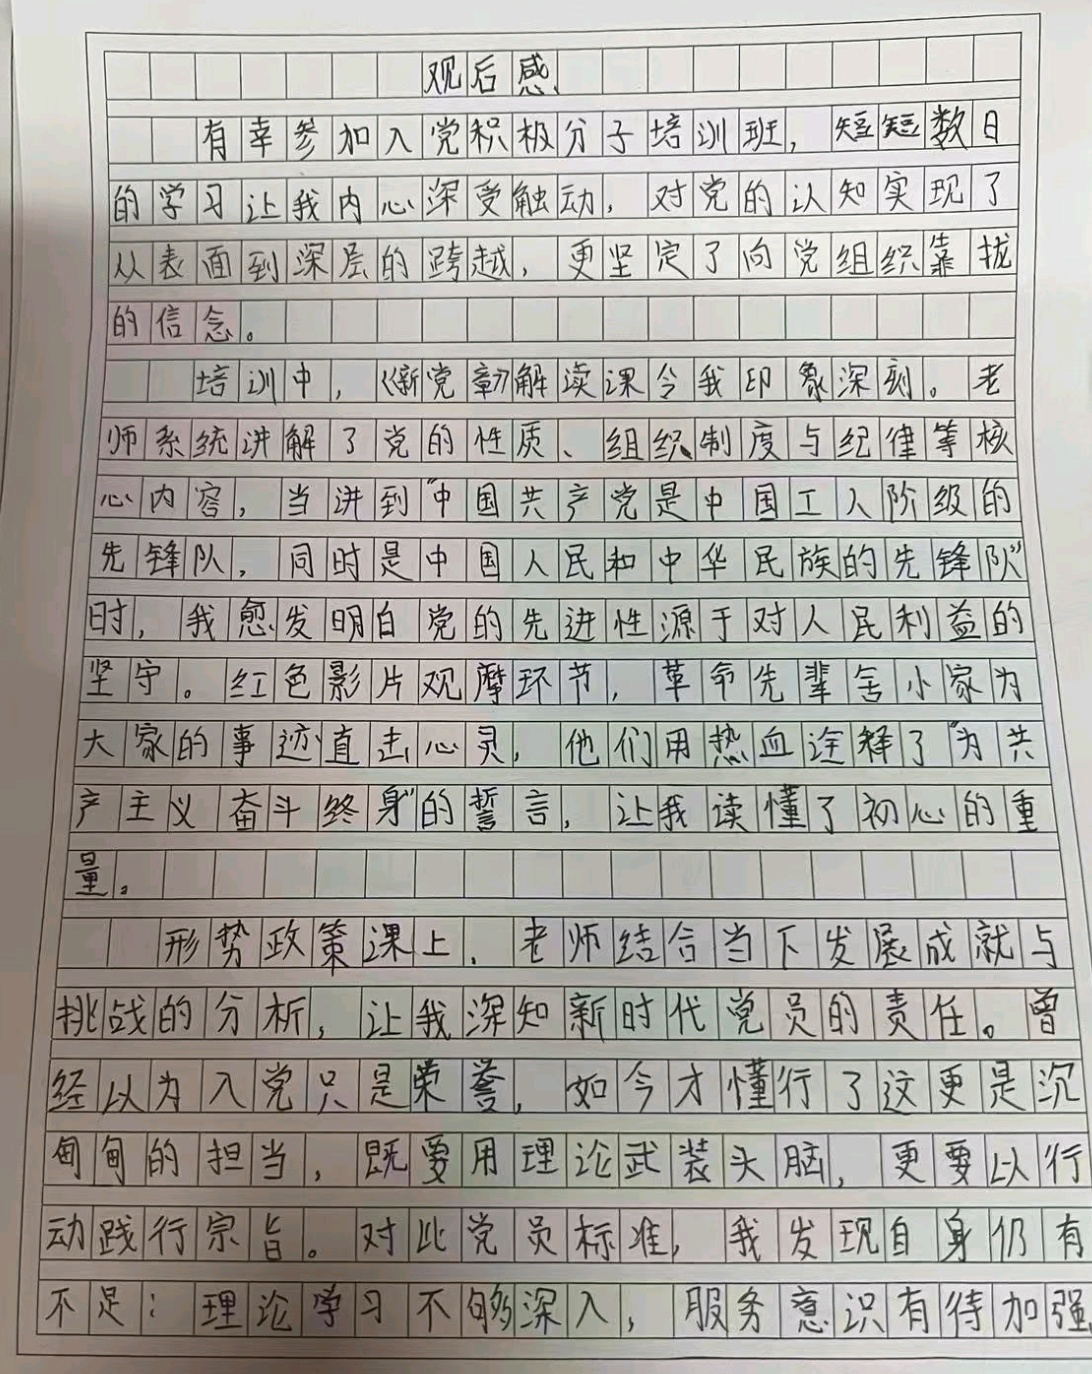 观后感
有幸参加入党积极分子培训班，短短数日
的学习让我内心深受触动，对党的认知实现了
从表面到深层的跨越，更坚定了向党组织靠拢
的信念。
培训中，《新党章》解读课令我印象深刻。老
师系统讲解了党的性质、组织制度与纪律等核
心内容，当讲到“中国共产党是中国工人阶级的
先锋队，同时是中国人民和中华民族的先锋队”
时，我愈发明白党的先进性源于对人民利益的
坚守。红色影片观摩环节，革命先辈舍小家为
大家的事迹直击心灵，他们用热血诠释了“为共
产主义奋斗终身”的誓言，让我读懂了初心的重
量。
形势政策课上，老师结合当下发展成就与
挑战的分析，让我深知新时代党员的责任。曾
经以为入党只是荣誉，如今才懂行了这更是沉
甸甸的担当，既要用理论武装头脑，更要以行
动践行宗旨。对此党员标准，我发现自身仍有
不足：理论学习不够深入，服务意识有待加强，